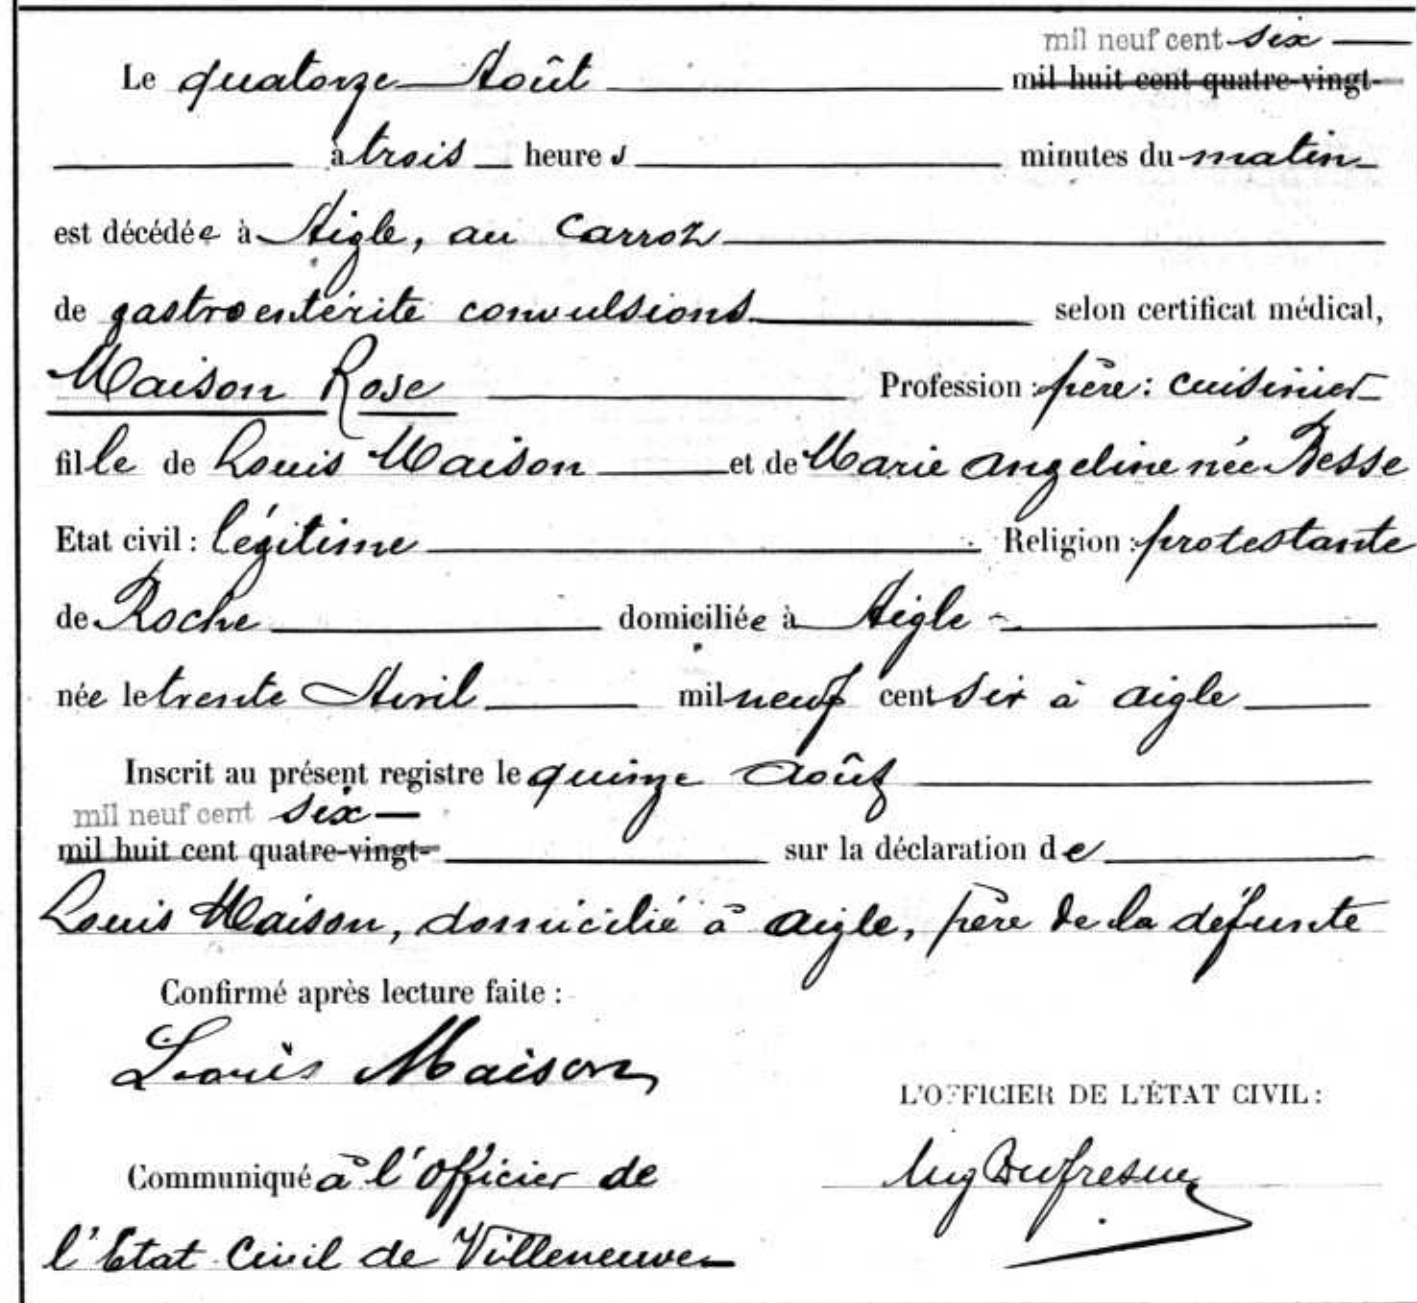 mil neuf cent six
Le quatorze Août mil huit cent quatre-vingt-
à trois heures minutes du matin
est décédée à Aigle, au Carroz
de gastro entérite convulsions selon certificat médical,
Maison Rose Profession : père : cuisinier
fille de Louis Maison et de Marie Angeline née Besse
Etat civil : légitime Religion : protestante
de Roche domiciliée à Aigle
née le trente Avril mil neuf cent six à Aigle
Inscrit au présent registre le quinze Août
mil neuf cent six
mil huit cent quatre-vingt- sur la déclaration de
Louis Maison, domicilié à Aigle, père de la défunte
Confirmé après lecture faite :
Louis Maison
L'OFFICIER DE L'ÉTAT CIVIL :
Communiqué à l'Officier de
Aug Dufresne
l'Etat Civil de Villeneuve